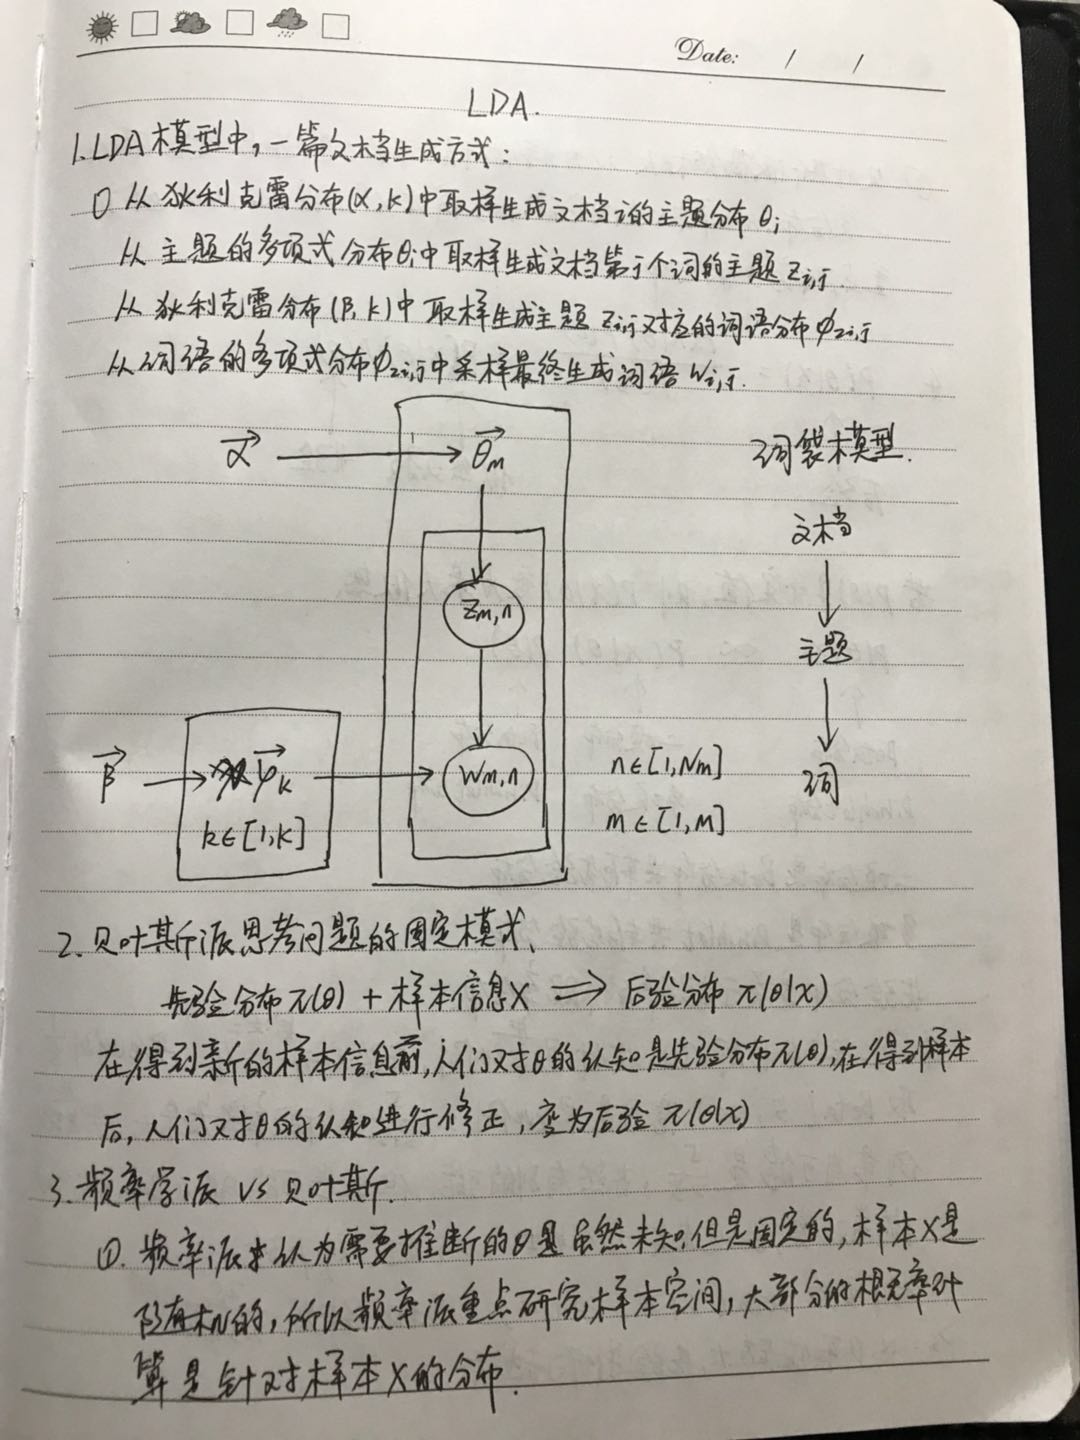 Date: / /
LDA.
1. LDA模型中，一篇文档生成方式：
① 从狄利克雷分布(α, K)中取样生成文档i的主题分布 θi
从主题的多项式分布θi中取样生成文档第j个词的主题 Zi,j.
从狄利克雷分布(β, K)中取样生成主题 Zi,j 对应的词语分布 φzi,j
从词语的多项式分布φzi,j中采样最终生成词语 Wi,j.
α → θm
词袋模型.
文档
Zm,n
主题
β → φk → Wm,n
n∈[1,Nm]
词
k∈[1,K]
m∈[1,M]
2. 贝叶斯派思考问题的固定模式、
先验分布π(θ) + 样本信息X ⟹ 后验分布 π(θ|x)
在得到新的样本信息前,人们对θ的认知是先验分布π(θ),在得到样本
后,人们对θ的认知进行修正,变为后验 π(θ|x)
3. 频率学派 VS 贝叶斯.
①. 频率派 认为需要推断的θ是虽然未知,但是固定的,样本X是
随机的,所以频率派重点研究样本空间,大部分的概率计
算是针对样本X的分布.